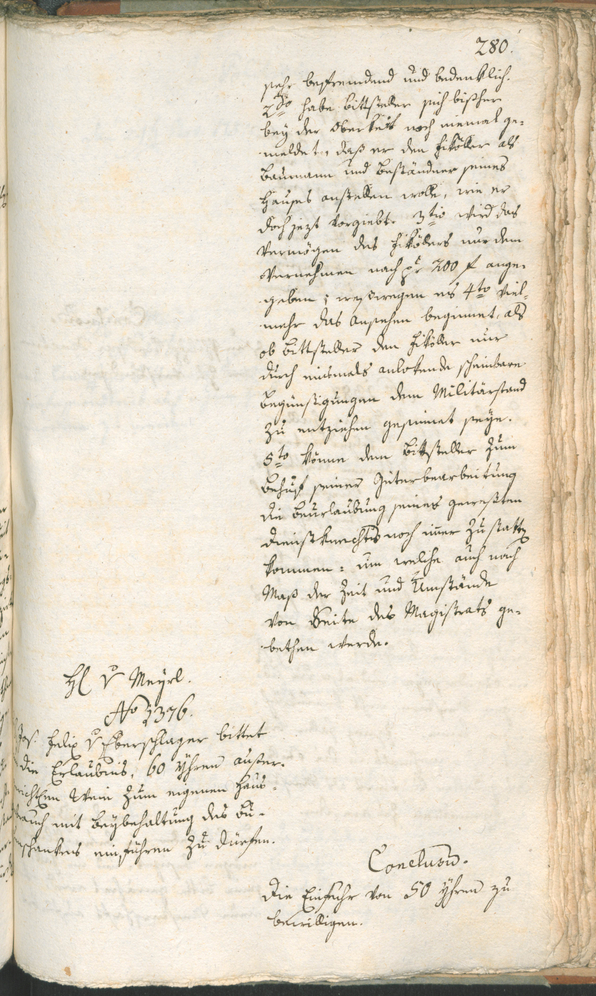 280.
sehr befremdend und bedenklich.
2do habe Bittsteller sich bisher
bey der Oberkeit noch niemal ge-
meldet, daß er den Fiköller als
Baumann und Beständner seines
Hauses anstellen wolle, wie er
doch jezt vorgiebt. 3tio wird das
Vermögen des Fiköllers nur dem
Vernehmen nach pr 200 f ange-
geben; weswegen es 4to viel-
mehr das Ansehen beginnet, als
ob Bittsteller den Fiköller nur
durch einmals anlokende scheinbare
Begünstigungen dem Militärstand
zu entziehen gesinnet seye.
5to könne dem Bittsteller zum
Behuf seiner Güterbearbeitung
die Beurlaubung seines gewesten
Dienstknechts noch immer zustatten
kommen: um welche auch nach
Maß der Zeit und Umstände
von Seite des Magistrats ge-
bethen werde.
H v Meyrl.
No 2376.
Jos. Felix v Eberschlager bittet
die Erlaubnis, 60 Yhren auser-
Wein zum eigenen Haus-
brauch mit Beybehaltung des Bu-
schankens einführen zu dürfen.
Conclusum.
Die Einfuhr von 50 Yhren zu
bewilligen.